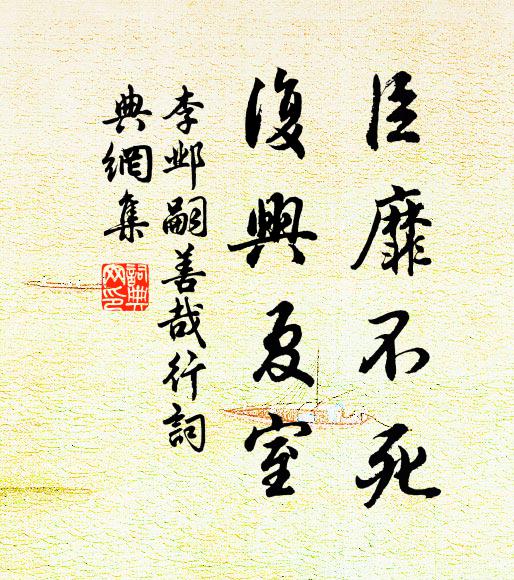 臣靡不死
復興夏室
李邺嗣善哉行詞
典網集
詞典
网印